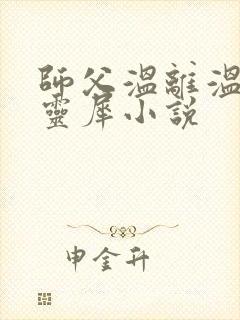 師父溫離溫
靈犀小說
申金升